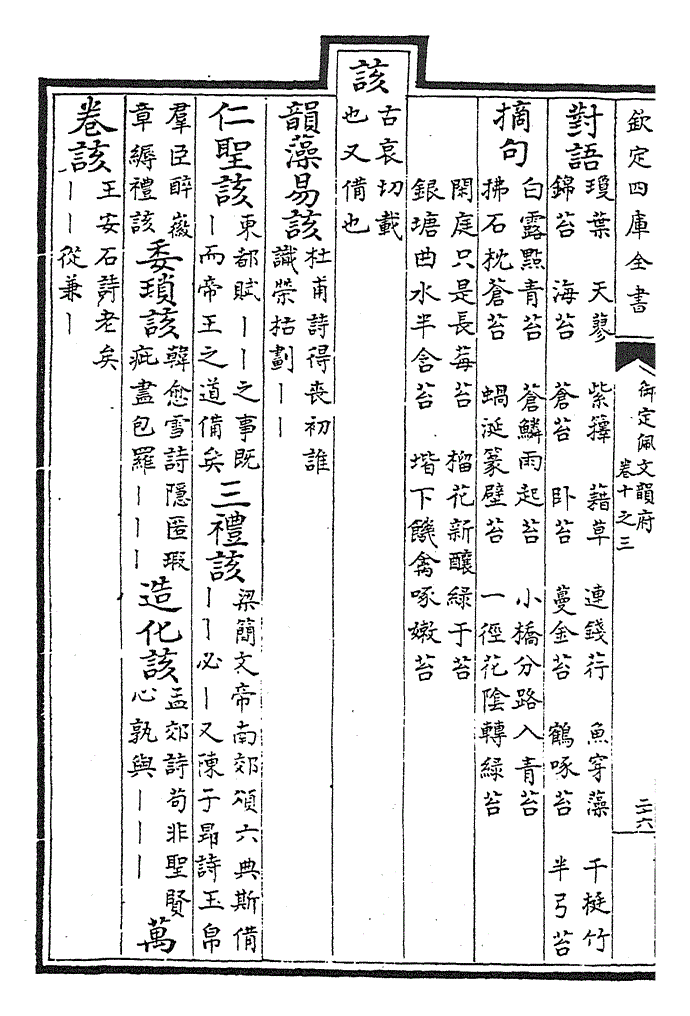 欽定四庫全書
御定佩文韻府
卷十之三
二六
對語
瓊葉 天蓼 紫蘀 藉草 連錢荇 魚穿藻 千梃竹
錦苔 海苔 蒼苔 卧苔 蔓金苔 鶴啄苔 半弓苔
摘句
白露點青苔 蒼鱗雨起苔 小橋分路入青苔
拂石枕蒼苔 蝸涎篆壁苔 一徑花陰轉綠苔
閑庭只是長莓苔 榴花新釀綠于苔
銀塘曲水半含苔 堦下饑禽啄嫩苔
該
古哀切載
也又備也
韻藻易該
杜甫詩得喪初誰
識榮枯劃丨丨
仁聖該
東都賦丨丨之事既
丨而帝王之道備矣
三禮該
梁簡文帝南郊頌六典斯備
丨丨必丨又陳子昂詩玉帛
羣臣醉徽
章縟禮該
委瑣該
韓愈雪詩隱匿瑕
疵盡包羅丨丨丨
造化該
孟郊詩苟非聖賢
心孰與丨丨丨
萬
卷該
王安石詩老矣
丨丨從兼丨